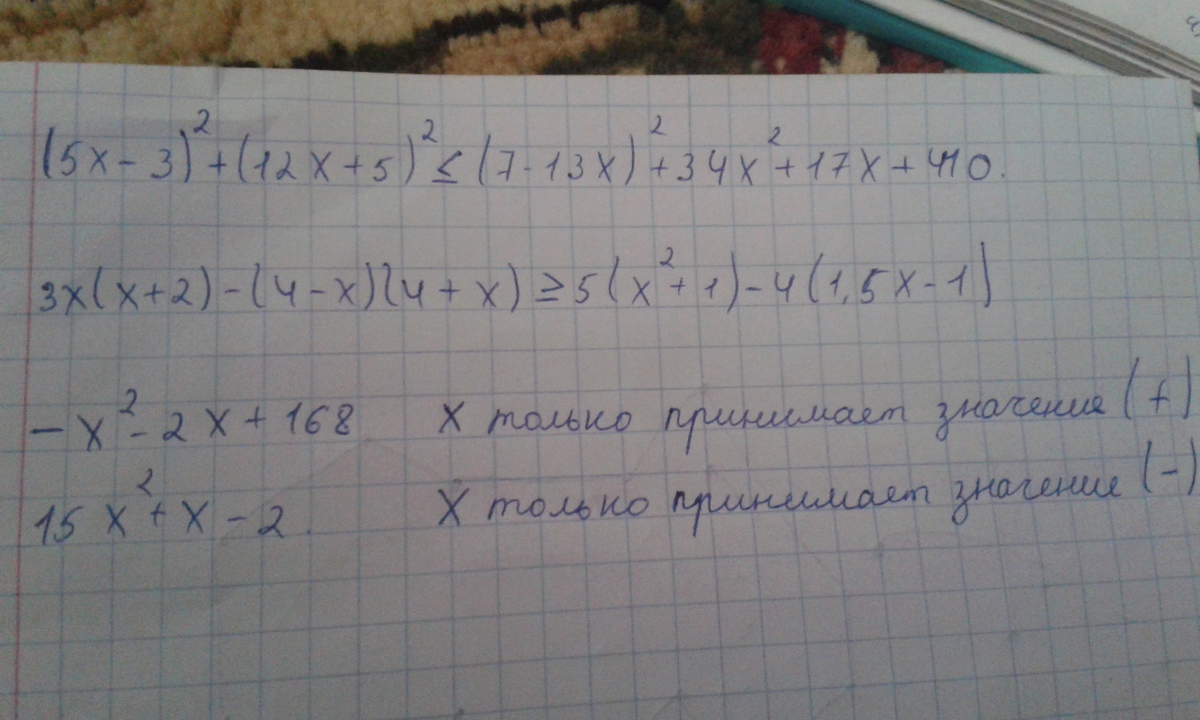 (5x-3)²+(12x+5)²≤(7-13x)²+34x²+17x+410.
3x(x+2)-(4-x)(4+x)≥5(x²+1)-4(1,5x-1)
-x²-2x+168 X только принимает значение (+)
15x²+x-2. X только принимает значение (-)